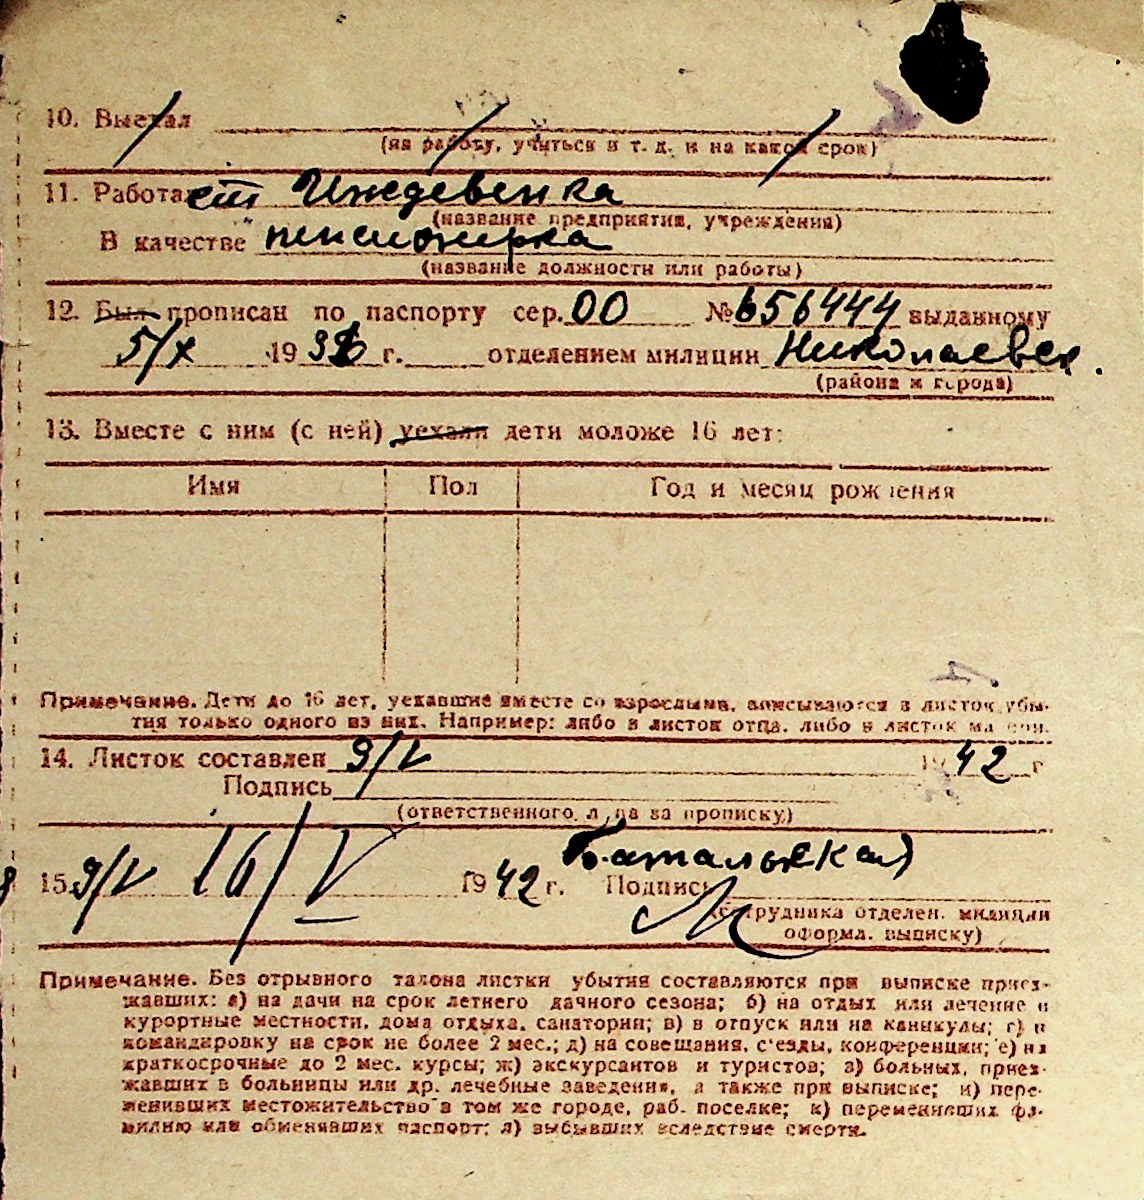 10. Выехал
(на работу, учиться и т. д. и на какой срок)
11. Работает Иждевенка
(название предприятия, учреждения)
В качестве пенсионерка
(название должности или работы)
12. Был прописан по паспорту сер. 00 № 656444 выданному
5/X 1938 г. отделением милиции Николаевск.
(района и города)
13. Вместе с ним (с ней) уехали дети моложе 16 лет:
Имя Пол Год и месяц рождения
Примечание. Дети до 16 лет, уехавшие вместе со взрослыми, вписываются в листок убы-
тия только одного из них. Например: либо в листок отца, либо в листок матери.
14. Листок составлен 9/V 1942 г
Подпись
(ответственного лица за прописку)
15. 9/V 16/V 1942 г. Подпись
(сотрудника отделен. милиции
оформл. выписку)
Примечание. Без отрывного талона листки убытия составляются при выписке приез-
жавших: а) на дачи на срок летнего дачного сезона; б) на отдых или лечение в
курортные местности, дома отдыха, санатории; в) в отпуск или на каникулы; г) в
командировку на срок не более 2 мес.; д) на совещания, с'езды, конференции; е) на
краткосрочные до 2 мес. курсы; ж) экскурсантов и туристов; з) больных, приез-
жавших в больницы или др. лечебные заведения, а также при выписке; и) пере-
менивших местожительство в том же городе, раб. поселке; к) переменивших фа-
милию или обменявших паспорт; л) выбывших вследствие смерти.